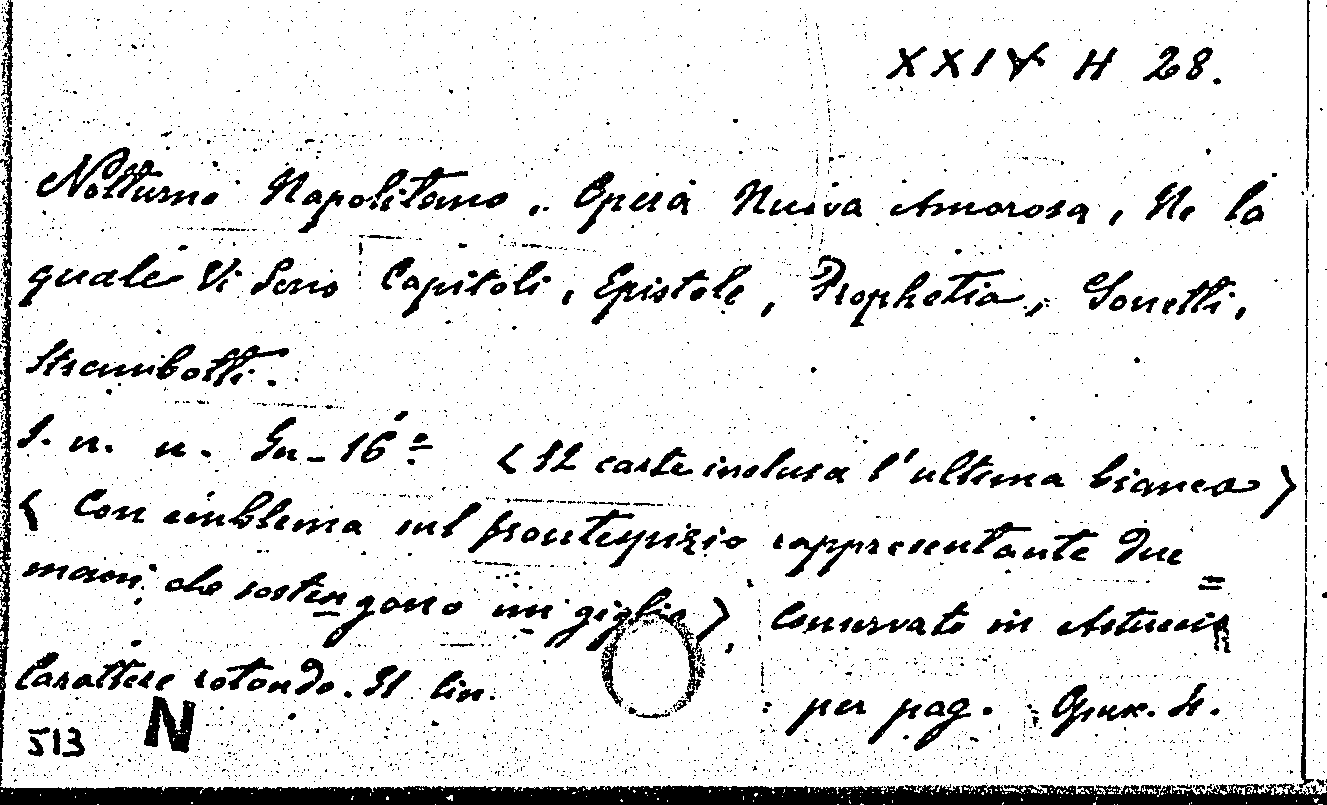 XXIV H 28.
Notturno Napolitano. Opera Nuova Amorosa, Ne la
quale Vi Sono Capitoli, Epistole, Prophetia, Sonetti,
Strambotti.
S. n. n. In-16º (12 carte inclusa l'ultima bianca)
(Con emblema sul frontespizio rappresentante due
mani che sostengono un giglio), Conservato in
Carattere rotondo. lin. per pag. Opusc. 4.
513 N